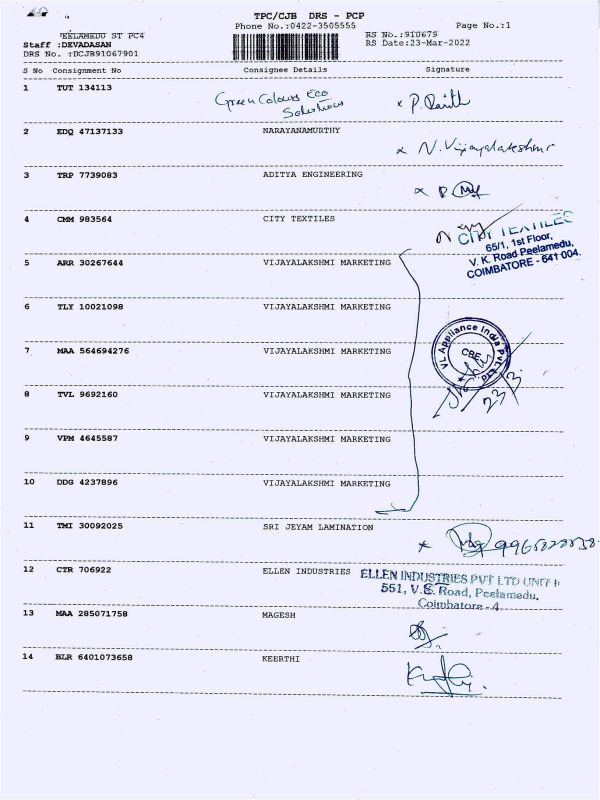 TPC/CJB DRS - PCP
Phone No.:0422-3505555
Page No.:1
EELAMEDU ST PC4
RS No.:910679
Staff :DEVADASAN
RS Date:23-Mar-2022
DRS No. :DCJB91067901
S No Consignment No Consignee Details Signature
1 TUT 134113 Green Colours Eco
Solutions
2 EDQ 47137133 NARAYANAMURTHY
x N. Vijayalakshmi
3 TRP 7739083 ADITYA ENGINEERING
4 CMM 983564 CITY TEXTILES
CITY TEXTILES
65/1, 1st Floor,
V. K. Road Peelamedu,
COIMBATORE - 641 004.
5 ARR 30267644 VIJAYALAKSHMI MARKETING
6 TLY 10021098 VIJAYALAKSHMI MARKETING
7 MAA 564694276 VIJAYALAKSHMI MARKETING
VL Appliance India Pvt Ltd
CBE
23/3
8 TVL 9692160 VIJAYALAKSHMI MARKETING
9 VPM 4645587 VIJAYALAKSHMI MARKETING
10 DDG 4237896 VIJAYALAKSHMI MARKETING
11 TMI 30092025 SRI JEYAM LAMINATION
12 CTR 706922 ELLEN INDUSTRIES
ELLEN INDUSTRIES PVT LTD UNIT II
551, V.K. Road, Peelamedu,
Coimbatore - 4
13 MAA 285071758 MAGESH
14 BLR 6401073658 KEERTHI